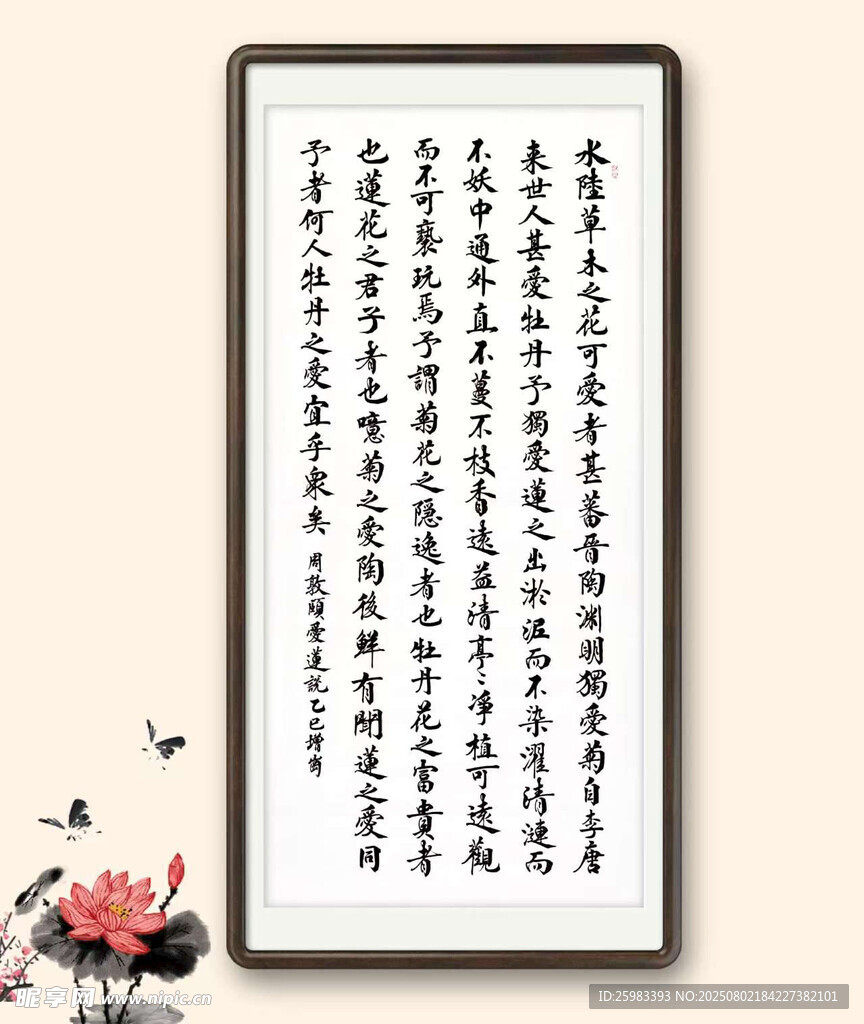 水陸草木之花可愛者甚蕃晋陶渊明獨愛菊自李唐
来世人甚愛牡丹予獨愛蓮之出淤泥而不染濯清漣而
不妖中通外直不蔓不枝香遠益清亭〻凈植可遠觀
而不可褻玩焉予謂菊花之隐逸者也牡丹花之富貴者
也蓮花之君子者也噫菊之愛陶後鮮有聞蓮之愛同
予者何人牡丹之愛宜乎衆矣
周敦頤愛蓮説乙巳増
昵享网 www.nipic.cn
ID:25983393 NO:20250802184227382101